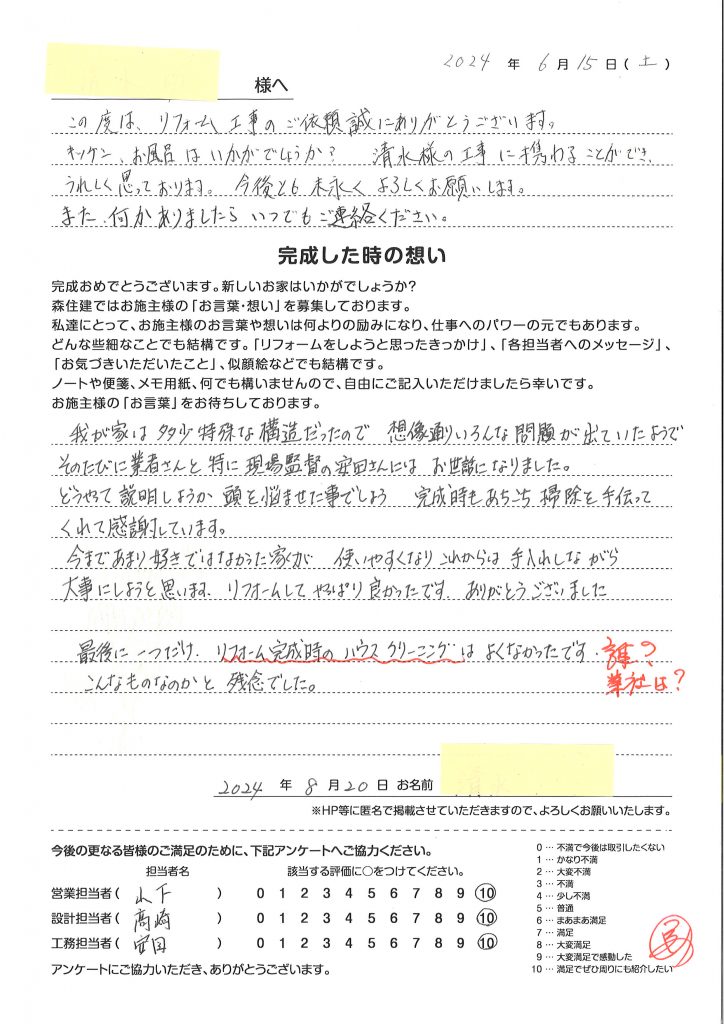 2024 年 6月 15日(土)
様へ
この度は、リフォーム工事のご依頼誠にありがとうございます。
キッチン、お風呂はいかがでしょうか? 清水様の工事に携わることができ、
うれしく思っております。今後とも末永くよろしくお願いします。
また、何かありましたらいつでもご連絡ください。
完成した時の想い
完成おめでとうございます。新しいお家はいかがでしょうか?
森住建ではお施主様の「お言葉・想い」を募集しております。
私達にとって、お施主様のお言葉や想いは何よりの励みになり、仕事へのパワーの元でもあります。
どんな些細なことでも結構です。「リフォームをしようと思ったきっかけ」、「各担当者へのメッセージ」、
「お気づきいただいたこと」、似顔絵などでも結構です。
ノートや便箋、メモ用紙、何でも構いませんので、自由にご記入いただけましたら幸いです。
お施主様の「お言葉」をお待ちしております。
我が家は多少特殊な構造だったので 想像通りいろんな問題が出ていたようで
そのたびに業者さんと特に現場監督の安田さんには お世話になりました。
どうやって説明しようか頭を悩ませた事でしょう 完成時もあちこち掃除を手伝って
くれて感謝しています。
今まであまり好きではなかった家が 使いやすくなりこれからは手入れしながら
大事にしようと思います。リフォームしてやっぱり良かったです ありがとうございました
最後に一つだけ、リフォーム完成時のハウスクリーニングはよくなかったです。 誰?
こんなものなのかと残念でした。 業社は?
2024 年 8月20日 お名前
※HP等に匿名で掲載させていただきますので、よろしくお願いいたします。
今後の更なる皆様のご満足のために、下記アンケートへご協力ください。
担当者名 該当する評価に○をつけてください。
営業担当者( 山下 ) 0 1 2 3 4 5 6 7 8 9 10
設計担当者( 高崎 ) 0 1 2 3 4 5 6 7 8 9 10
工務担当者( 安田 ) 0 1 2 3 4 5 6 7 8 9 10
アンケートにご協力いただき、ありがとうございます。
0 … 不満で今後は取引したくない
1 … かなり不満
2 … 大変不満
3 … 不満
4 … 少し不満
5 … 普通
6 … まあまあ満足
7 … 満足
8 … 大変満足
9 … 大変満足で感動した
10 … 満足でぜひ周りにも紹介したい